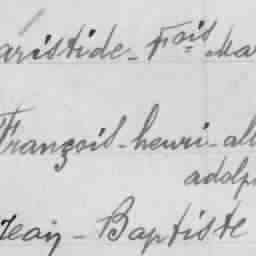 aristide - Fois Ma
François - henri - al
adolp
Jean - Baptiste